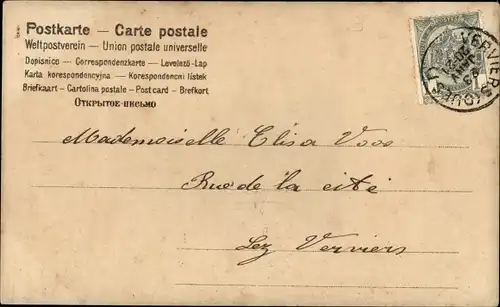 Postkarte — Carte postale
Weltpostverein — Union postale universelle
Dopisnice — Correspondenzkarte — Levelező-Lap
Karta korespondencyjna — Korespondenční listek
Briefkaart — Cartolina postale — Post card — Brefkort
Открытое-письмо
VERVIERS
Mademoiselle Elisa Voos
Rue de la cité
Lez Verviers